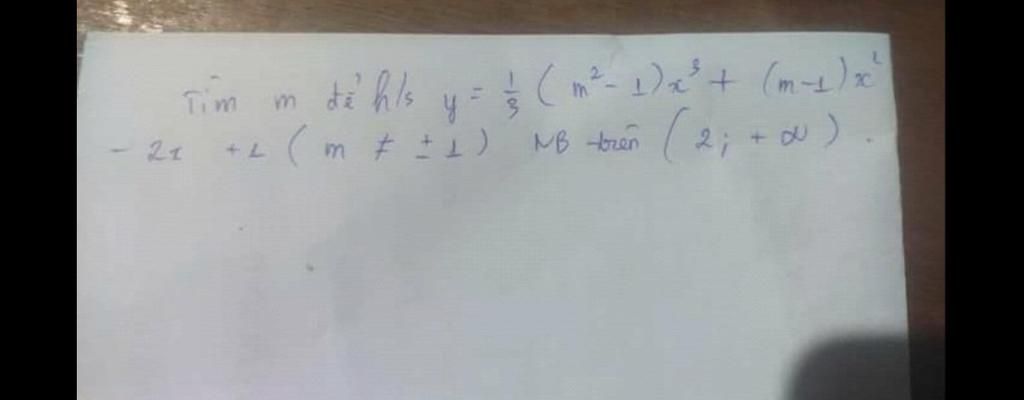 Tìm m để h/s y = 1/3 (m² - 1)x³ + (m-1)x²
- 2x + 1 ( m ≠ ± 1) NB trên (2; + ∞) .